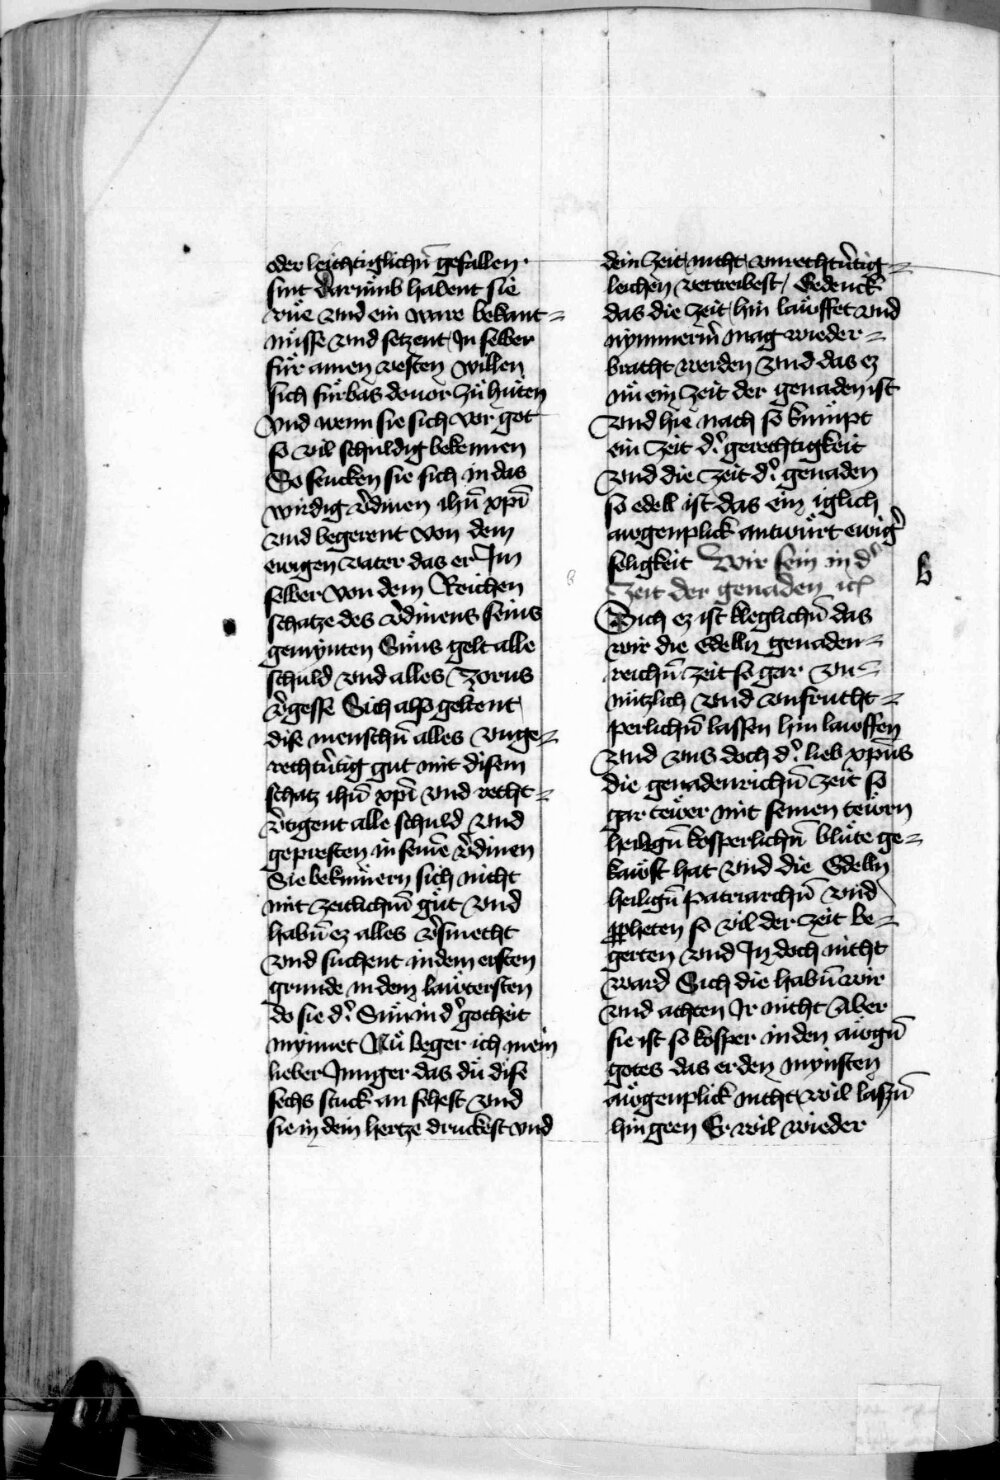 oder leichtiglichn̄ gefallen ·
sint Darumb habent sie
rüe vnd ein ware bekant=
nüsse vnd setzent In selber
für ainen vesten willen
sich fürbas douor zü hüten
vnd wenn sie sich vor got
so vil schuldig bekennen
So sencken sie sich in das
wirdig v̉dinen ihū xp̄i
vnd begerent von dem
ewigen vater das er Im
selber von dem Reichen
schatze des v̉dinens seins
gemynten Süns gelt alle
schuld vnd alles Zorns
v̉gesse Sich also geltent
dise menschn̄ alles vnge=
rechtv̉tig gut mit disem
schatz ihū xp̄i vnd recht=
v̉tigent alle schuld vnd
gepresten in seinē v̉dinen
Sie bekümern sich nicht
mit zeitlichm̄ güt vnd
habn̄ ez alles v̉smecht
vnd suchent in dem ersten
grunde in dem lawtersten
do sie d̉ Sün in d̉ gotheit
mynnet Nü beger ich mein
lieber Junger das dü dise
sechs stuck an sehest vnd
sie in dem hertze druckest vnd
dein zeit nicht vnrechtv̉tig=
leichen vertreibest / Gedenck
das die zeit hin lawffet vnd
nymmerm̉ mag wieder=
bracht werden vnd das ez
nü ein zeit der genaden ist
vnd hie nach so kümpt
ein zeit d̉ gerechtigkeit
vnd die zeit d̉ genaden
so edell ist das ein iglich
awgenplick antwürt ewig̉
seligkeit Wir sein in d̉
zeit der genaden ic̄
Sich ez ist kleglichn̄ das
wir die Edelln genaden=
reichn̄ zeit so gar vn=
nützlich vnd vnfrucht=
perlichn̄ lassen hin lawffen
vnd vns doch d̉ lieb xp̄us
die genadenrichn̄ zeit so
gar tewer mit seinen tewrn
heilign̄ kosperlichn̄ blüte ge=
kawft hat vnd die Edelln
heilign̄ patriarchn̄ vnd
ꝓpheten so vil der zeit be=
gerten vnd In doch nicht
ward Sich die habn̄ wir
vnd achten Ir nicht Aber
sie ist so kosper in den awgn̄
gotes das er den mynsten
awgenplick nicht wil laszn̄
hin geen Er wil wieder
b